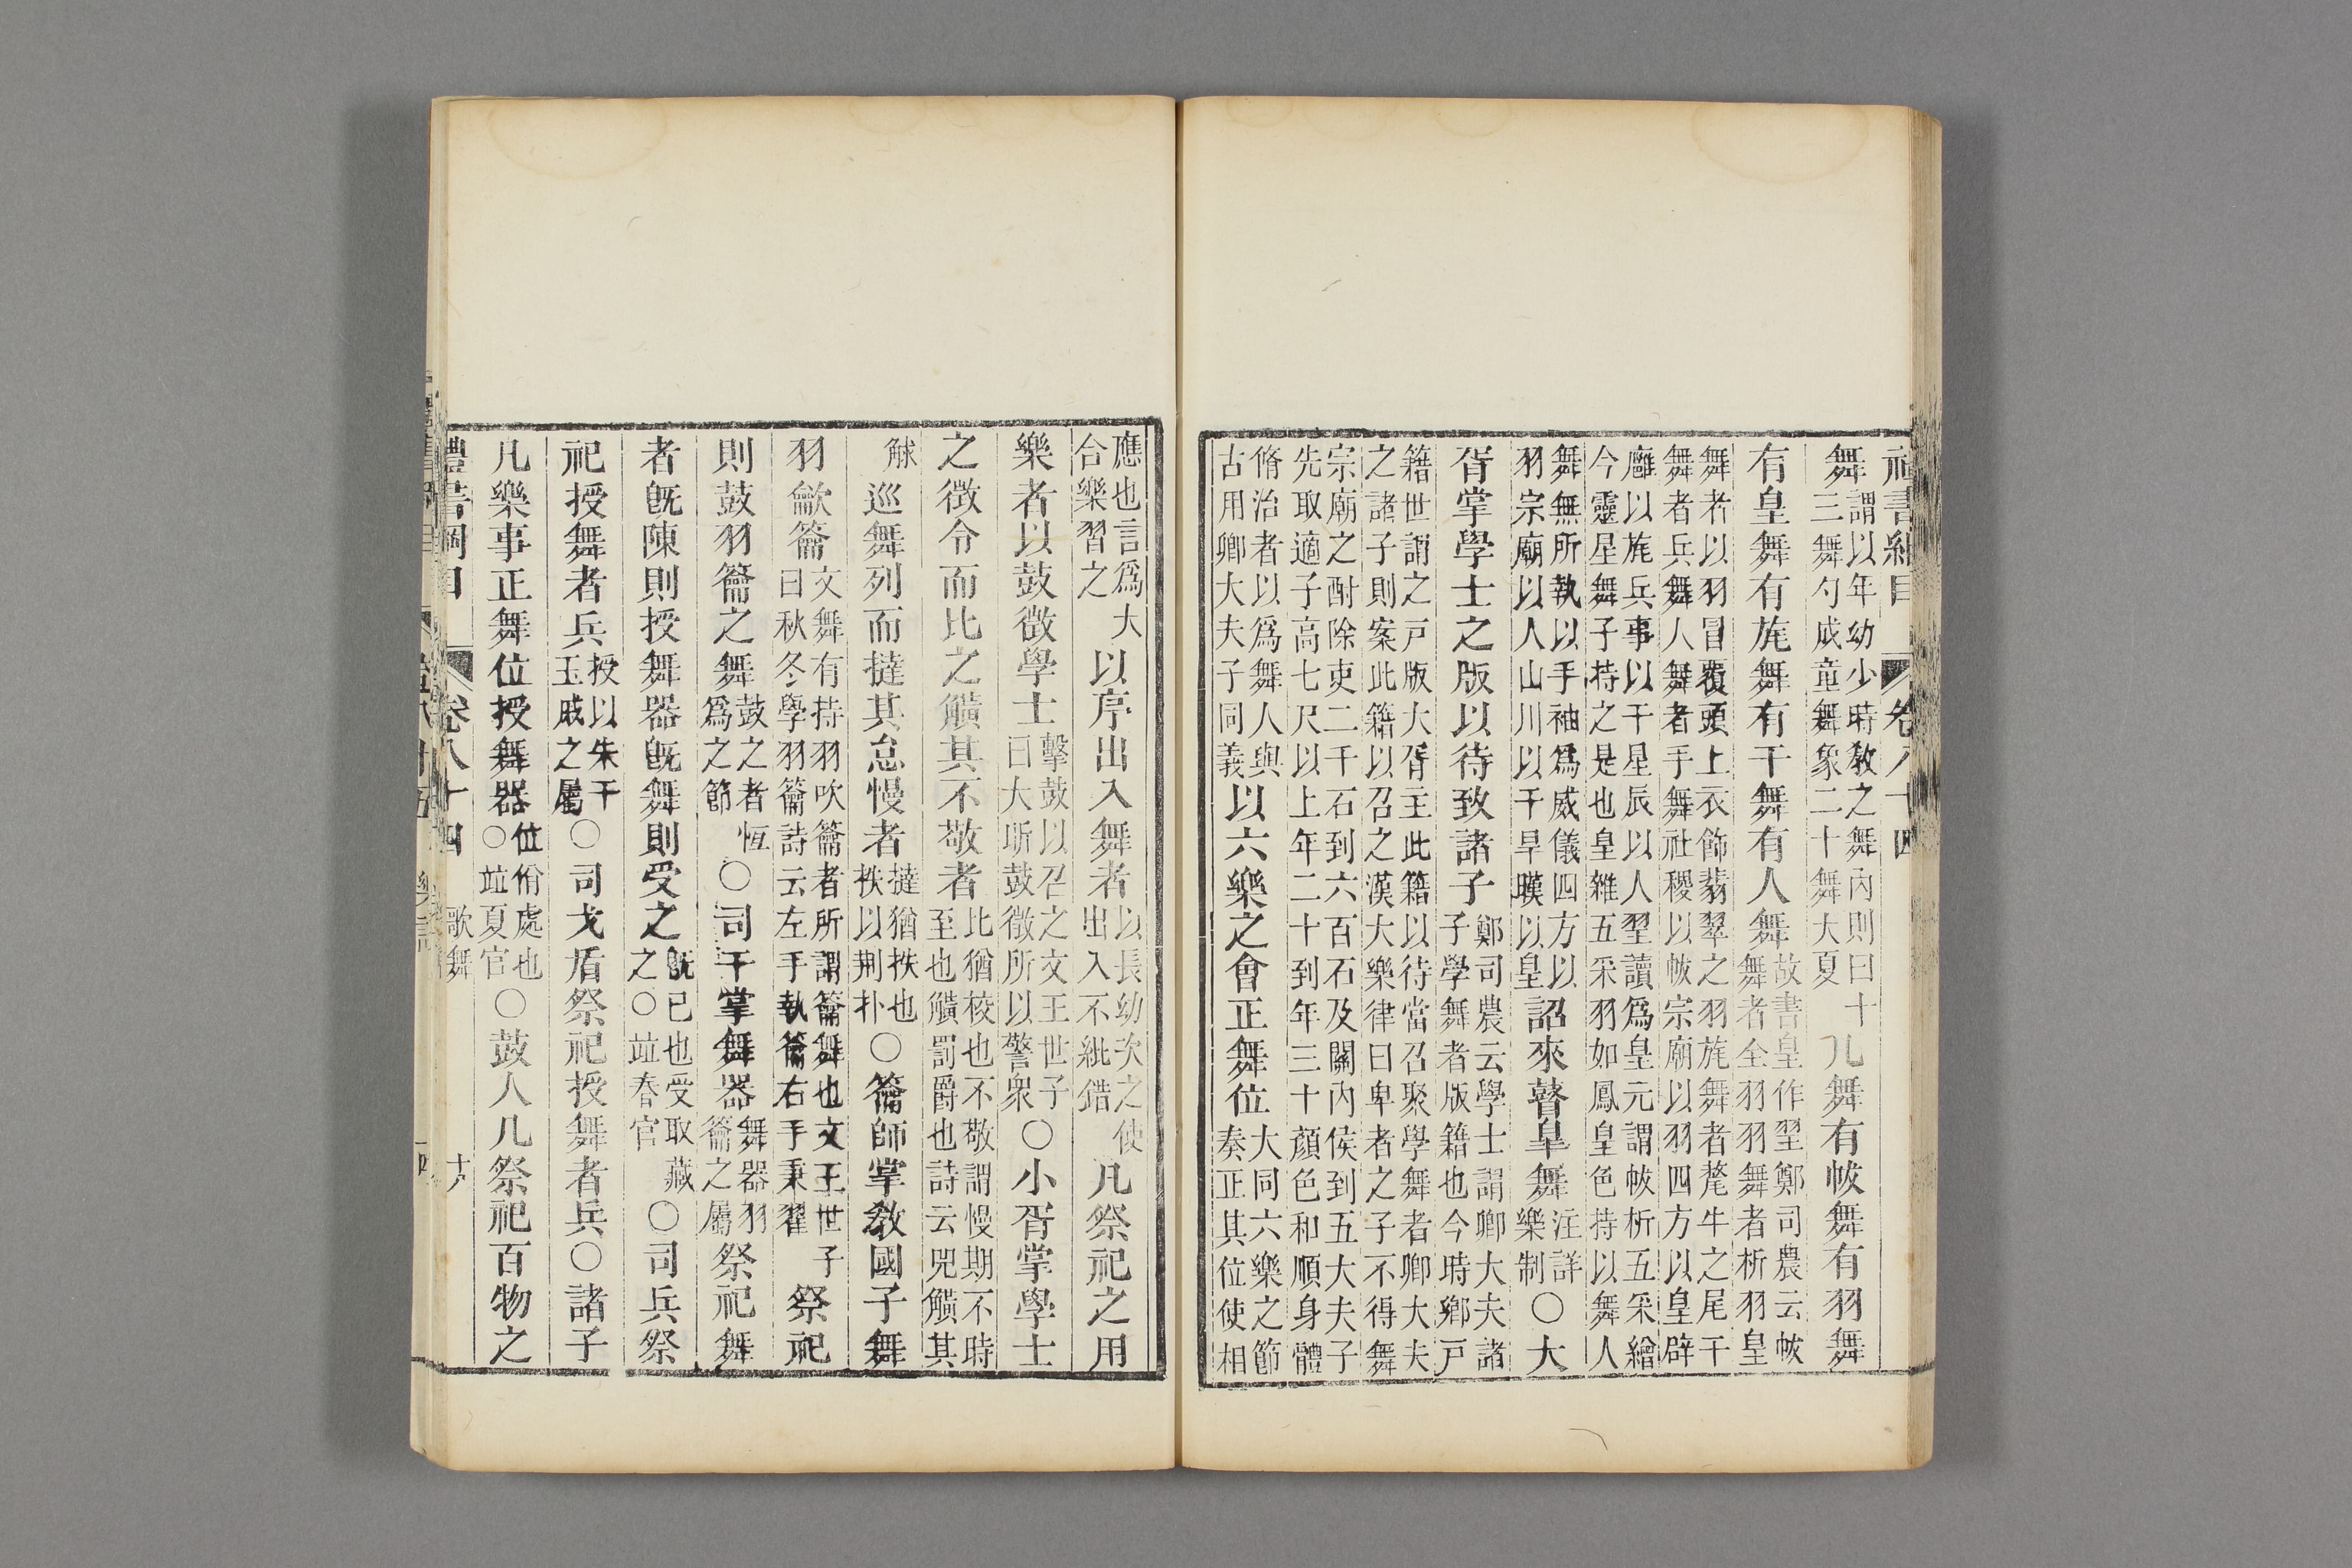 禮書綱目 卷八十四
舞謂以年幼少時敎之舞內則曰十
三舞勺成童舞象二十舞大夏凡舞有帗舞有羽舞
有皇舞有旄舞有干舞有人舞故書皇作䍿鄭司農云帗
舞者全羽羽舞者析羽皇
舞者以羽冒覆頭上衣飾翡翠之羽旄舞者氂牛之尾干
舞者兵舞人舞者手舞社稷以帗宗廟以羽四方以皇辟
廱以旄兵事以干星辰以人䍿讀爲皇元謂帗析五采繒
今靈星舞子持之是也皇雜五采羽如鳳皇色持以舞人
舞無所執以手袖爲威儀四方以
羽宗廟以人山川以干旱暵以皇詔來瞽皐舞注詳
樂制○大
胥掌學士之版以待致諸子鄭司農云學士謂卿大夫諸
子學舞者版籍也今時鄉戸
籍世謂之戸版大胥主此籍以待當召聚學舞者卿大夫
之諸子則案此籍以召之漢大樂律曰卑者之子不得舞
宗廟之酎除吏二千石到六百石及關內侯到五大夫子
先取適子高七尺以上年二十到年三十顏色和順身體
脩治者以爲舞人與
古用卿大夫子同義以六樂之會正舞位大同六樂之節
奏正其位使相
應也言爲大
合樂習之以序出入舞者以長幼次之使
出入不紕錯凡祭祀之用
樂者以鼓徵學士擊鼓以召之文王世子
曰大昕鼓徵所以警衆○小胥掌學士
之徵令而比之觵其不敬者比猶校也不敬謂慢期不時
至也觵罰爵也詩云兕觵其
觩巡舞列而撻其怠慢者撻猶抶也
抶以荆扑○籥師掌敎國子舞
羽龡籥文舞有持羽吹籥者所謂籥舞也文王世子
曰秋冬學羽籥詩云左手執籥右手秉翟祭祀
則鼓羽籥之舞鼓之者恆
爲之節○司干掌舞器舞器羽
籥之屬祭祀舞
者旣陳則授舞器旣舞則受之旣已也受取藏
之○竝春官○司兵祭
祀授舞者兵授以朱干
玉戚之屬○司戈盾祭祀授舞者兵○諸子
凡樂事正舞位授舞器位佾處也
○竝夏官○鼓人凡祭祀百物之
禮書綱目 卷八十四 歌舞